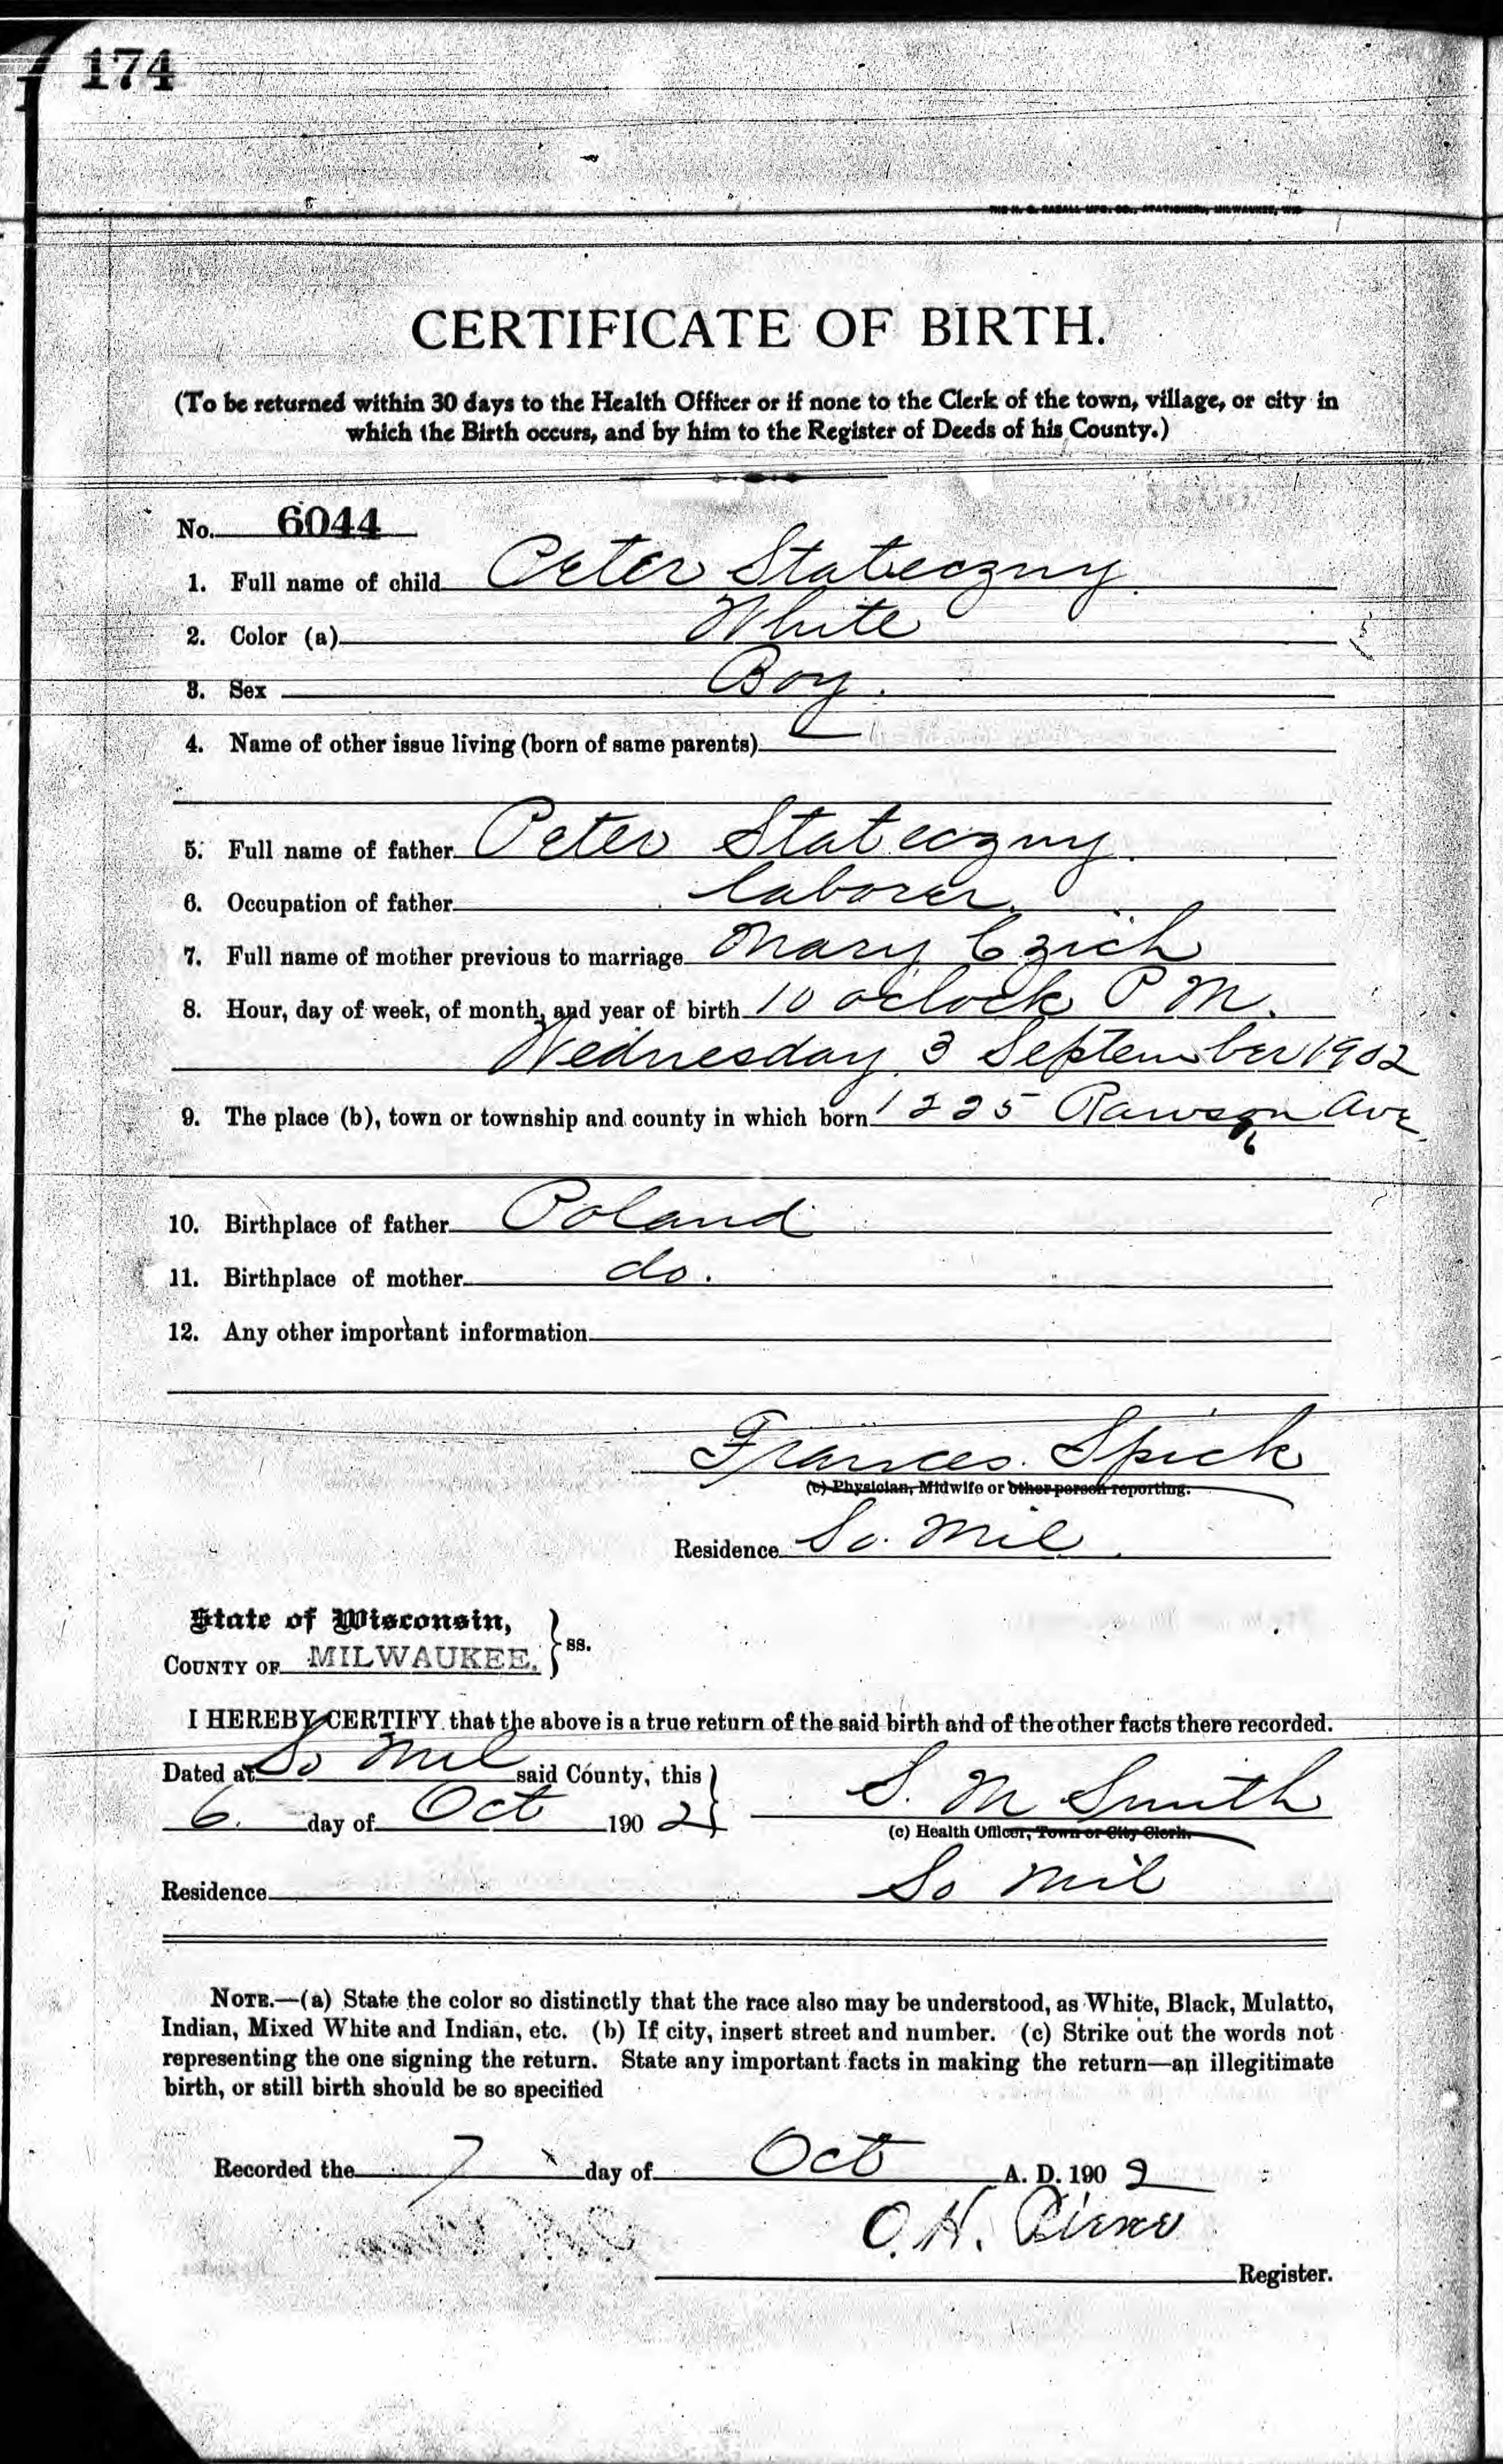 174
THE H. G. RAZALL MFG. CO., STATIONERS, MILWAUKEE, WIS
CERTIFICATE OF BIRTH.
(To be returned within 30 days to the Health Officer or if none to the Clerk of the town, village, or city in
which the Birth occurs, and by him to the Register of Deeds of his County.)
No. 6044
1. Full name of child Peter Stateczny
2. Color (a) White
3. Sex Boy.
4. Name of other issue living (born of same parents)
5. Full name of father Peter Stateczny.
6. Occupation of father laborer.
7. Full name of mother previous to marriage Mary Czich
8. Hour, day of week, of month, and year of birth 10 oclock P M.
Wednesday 3 September 1902
9. The place (b), town or township and county in which born 1225 Rawson Ave
10. Birthplace of father Poland
11. Birthplace of mother do.
12. Any other important information
Frances Spick
(c) Physician, Midwife or other person reporting.
Residence So. Mil
State of Wisconsin,
COUNTY OF MILWAUKEE, } ss.
I HEREBY CERTIFY that the above is a true return of the said birth and of the other facts there recorded.
Dated at So Mil said County, this
6. day of Oct 1902 } S. M Smith
(c) Health Officer, Town or City Clerk.
Residence So Mil
NOTE.—(a) State the color so distinctly that the race also may be understood, as White, Black, Mulatto,
Indian, Mixed White and Indian, etc. (b) If city, insert street and number. (c) Strike out the words not
representing the one signing the return. State any important facts in making the return—an illegitimate
birth, or still birth should be so specified
Recorded the 7 day of Oct A. D. 1902
O. H.
Register.